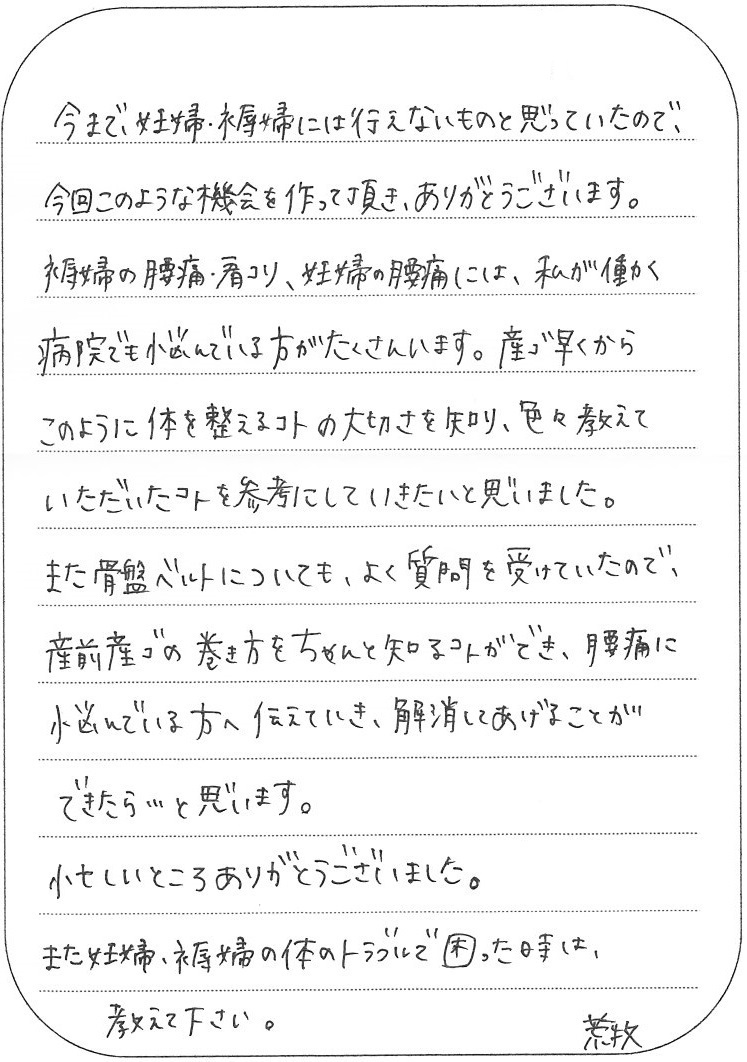 今まで、妊婦・褥婦には行えないものと思っていたので、
今回このような機会を作って頂き、ありがとうございます。
褥婦の腰痛・肩コリ、妊婦の腰痛には、私が働く
病院でも悩んでいる方がたくさんいます。産ゴ早くから
このように体を整えるコトの大切さを知り、色々教えて
いただいたコトを参考にしていきたいと思いました。
また骨盤ベルトについても、よく質問を受けていたので、
産前産ゴの巻き方をちゃんと知るコトができ、腰痛に
悩んでいる方へ伝えていき、解消してあげることが
できたら…と思います。
忙しいところありがとうございました。
また妊婦、褥婦の体のトラブルで困った時は、
教えて下さい。
荒牧